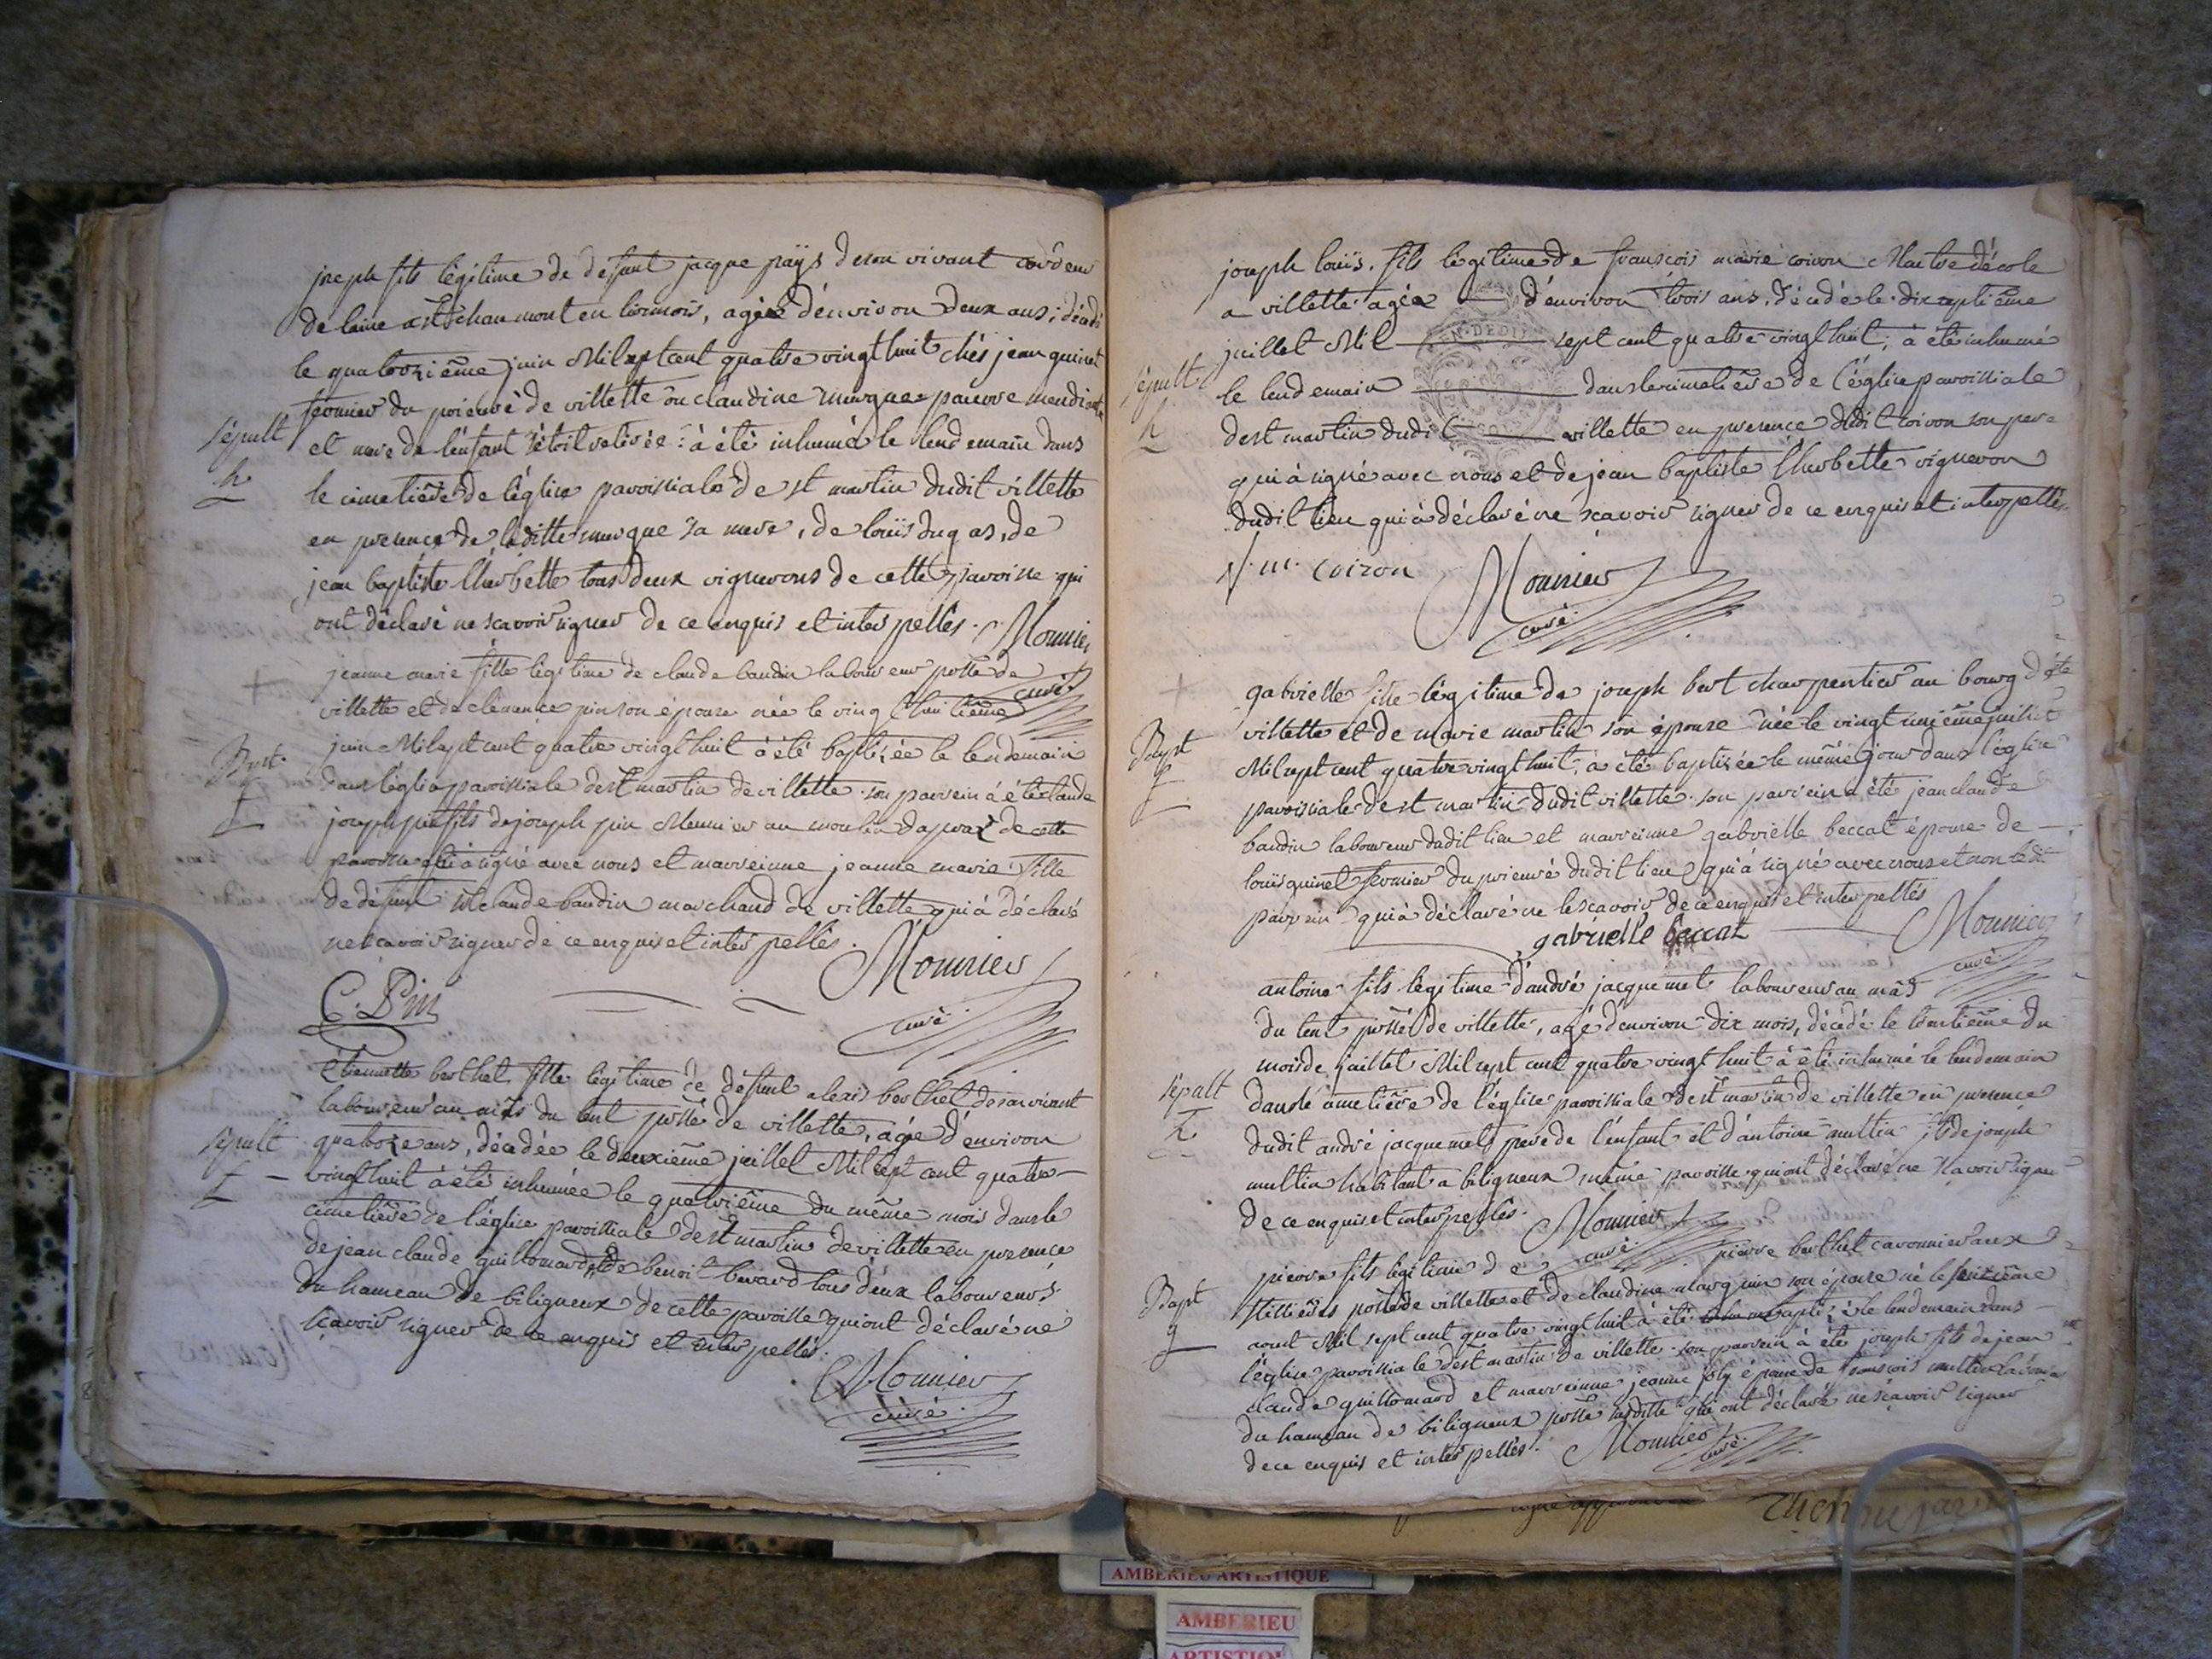 joseph fils légitime de defunt jacque païs de son vivant cardeur
de laine a st chaumont en lionnois, agée d'environ deux ans, décédé
le quatorzième juin Mil sept cent quatre vingt huit chés jean quinet
fermier du prieuré de villette ou claudine murque pauvre mendiante
et mere de l'enfant s'étoit retirée : à été inhumé le lendemain dans
le cimetière de l'église paroissiale de st martin dudit villette
en presence de laditte murque sa mere, de louis dugas, de
jean baptiste lherbette tous deux vignerons de cette paroisse qui
ont déclaré ne scavoir signer de ce enquis et interpellés. Mounier
curé
Sépult
h
jeanne marie fille légitime de claude baudin laboureur psse de
villette et de clémance pin son épouse née le vingt huitième
juin Mil sept cent quatre vingt huit à été baptisée le lendemain
dans l'église paroissiale de st martin de villette. son parrein à été claude
joseph pin fils de joseph pin Meunier au moulin de cette
paroisse qui à signé avec nous et marreinne jeanne marie fille
de défunt claude baudin marchand de villette qui à déclaré
ne scavoir signer de ce enquis et interpellés.
Bapt
f
Mounier
curé
C. Pin
Etiennette berthet fille légitime de défunt alexis berthet de son vivant
laboureur au mâs du lent psse de villette, agée d'environ
quatorze ans, décédée le deuxième juillet Mil sept cent quatre
vingt huit à été inhumée le quatrième du même mois dans le
cimetière de l'église paroissiale de st martin de villette en presence
de jean claude guillomard et de benoit berard tous deux laboureurs
du hameau de biligneux de cette paroisse qui ont déclaré ne
scavoir signer de ce enquis et interpellés.
Sépult
f
Mounier
curé
joseph louis fils légitime de françois marie coiron Maitre d'école
a villette agée d'environ trois ans, décédé le dix septième
juillet Mil sept cent quatre vingt huit, à été inhumé
le lendemain dans le cimetière de l'église paroissiale
de st martin dudit villette en presence dudit coiron son pere
qui à signé avec nous et de jean baptiste lherbette vigneron
dudit lieu qui à déclaré ne scavoir signer de ce enquis et interpellés
Sépult
h
coiron Mounier
curé
gabrielle fille légitime de joseph bert charpentier au bourg de
villette et de marie martin son épouse née le vingt unième juillet
Mil sept cent quatre vingt huit, à été baptisée le même jour dans l'église
paroissiale de st martin dudit villette. son parrein à été jean claude
baudin laboureur dudit lieu et marreinne gabrielle beccat épouse de
louis quinet fermier du prieuré dudit lieu qui à signé avec nous et non ledt
parrein qui à déclaré ne le scavoir de ce enquis et interpellés
Bapt
f
gabrielle beccat Mounier
curé
antoine fils légitime d'andré jacquemet laboureur au mâs
du lent psse de villette, agé d'environ dix mois, décédé le trentième du
mois de juillet Mil sept cent quatre vingt huit à été inhumé le lendemain
dans le cimetière de l'église paroissiale de st martin de villette en presence
dudit andré jacquemet pere de l'enfant et d'antoine multin fils de joseph
multin habitant a biligneux même paroisse qui ont déclaré ne scavoir signer
de ce enquis et interpellés. Mounier
curé
Sépult
h
pierre fils légitime de pierre berthet
psse de villette et de claudine son épouse né le
aout Mil sept cent quatre vingt huit à été baptisé le lendemain dans
l'église paroissiale de st martin de villette. son parrein à été joseph fils de jean
claude guillomard et marreinne jeanne joly épouse de françois multin
du hameau de biligneux psse susditte qui ont déclaré ne scavoir signer
de ce enquis et interpellés. Mounier
curé
Bapt
g
AMBERIEU ARTISTIQUE
AMBERIEU
ARTISTIQUE